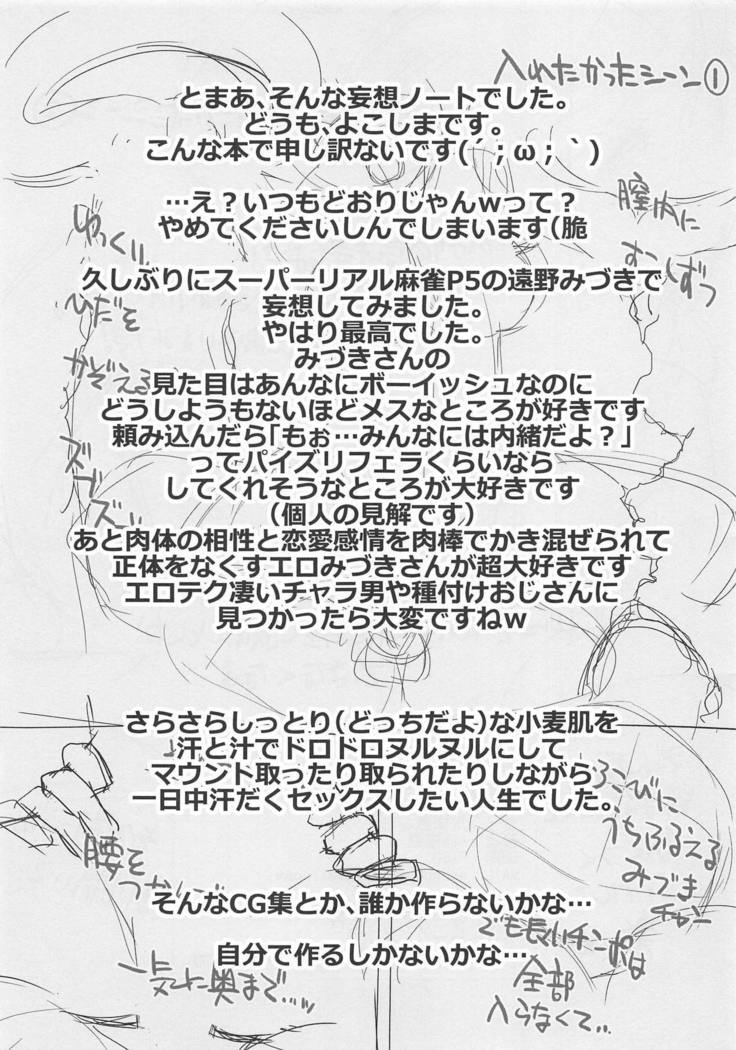 入れたかったシーン①
とまあ、そんな妄想ノートでした。
どうも、よこしまです。
こんな本で申し訳ないです(´；ω；｀)
…え？いつもどおりじゃんwって？
やめてくださいしんでしまいます(脆
膣内に
すこしずつ
ゆっくり
ひだを
かぞえる
ズブズブ…
久しぶりにスーパーリアル麻雀P5の遠野みづきで
妄想してみました。
やはり最高でした。
みづきさんの
見た目はあんなにボーイッシュなのに
どうしようもないほどメスなところが好きです
頼み込んだら「もぉ…みんなには内緒だよ？」
ってパイズリフェラくらいなら
してくれそうなところが大好きです
（個人の見解です）
あと肉体の相性と恋愛感情を肉棒でかき混ぜられて
正体をなくすエロみづきさんが超大好きです
エロテク凄いチャラ男や種付けおじさんに
見つかったら大変ですねw
さらさらしっとり（どっちだよ）な小麦肌を
汗と汁でドロドロヌルヌルにして
マウント取ったり取られたりしながら
一日中汗だくセックスしたい人生でした。
うちふるえる
みづき
チャン
腰を
そんなCG集とか、誰か作らないかな…
自分で作るしかないかな…
一気に奥まで…
でも長いチンポは
全部
入らなくて…